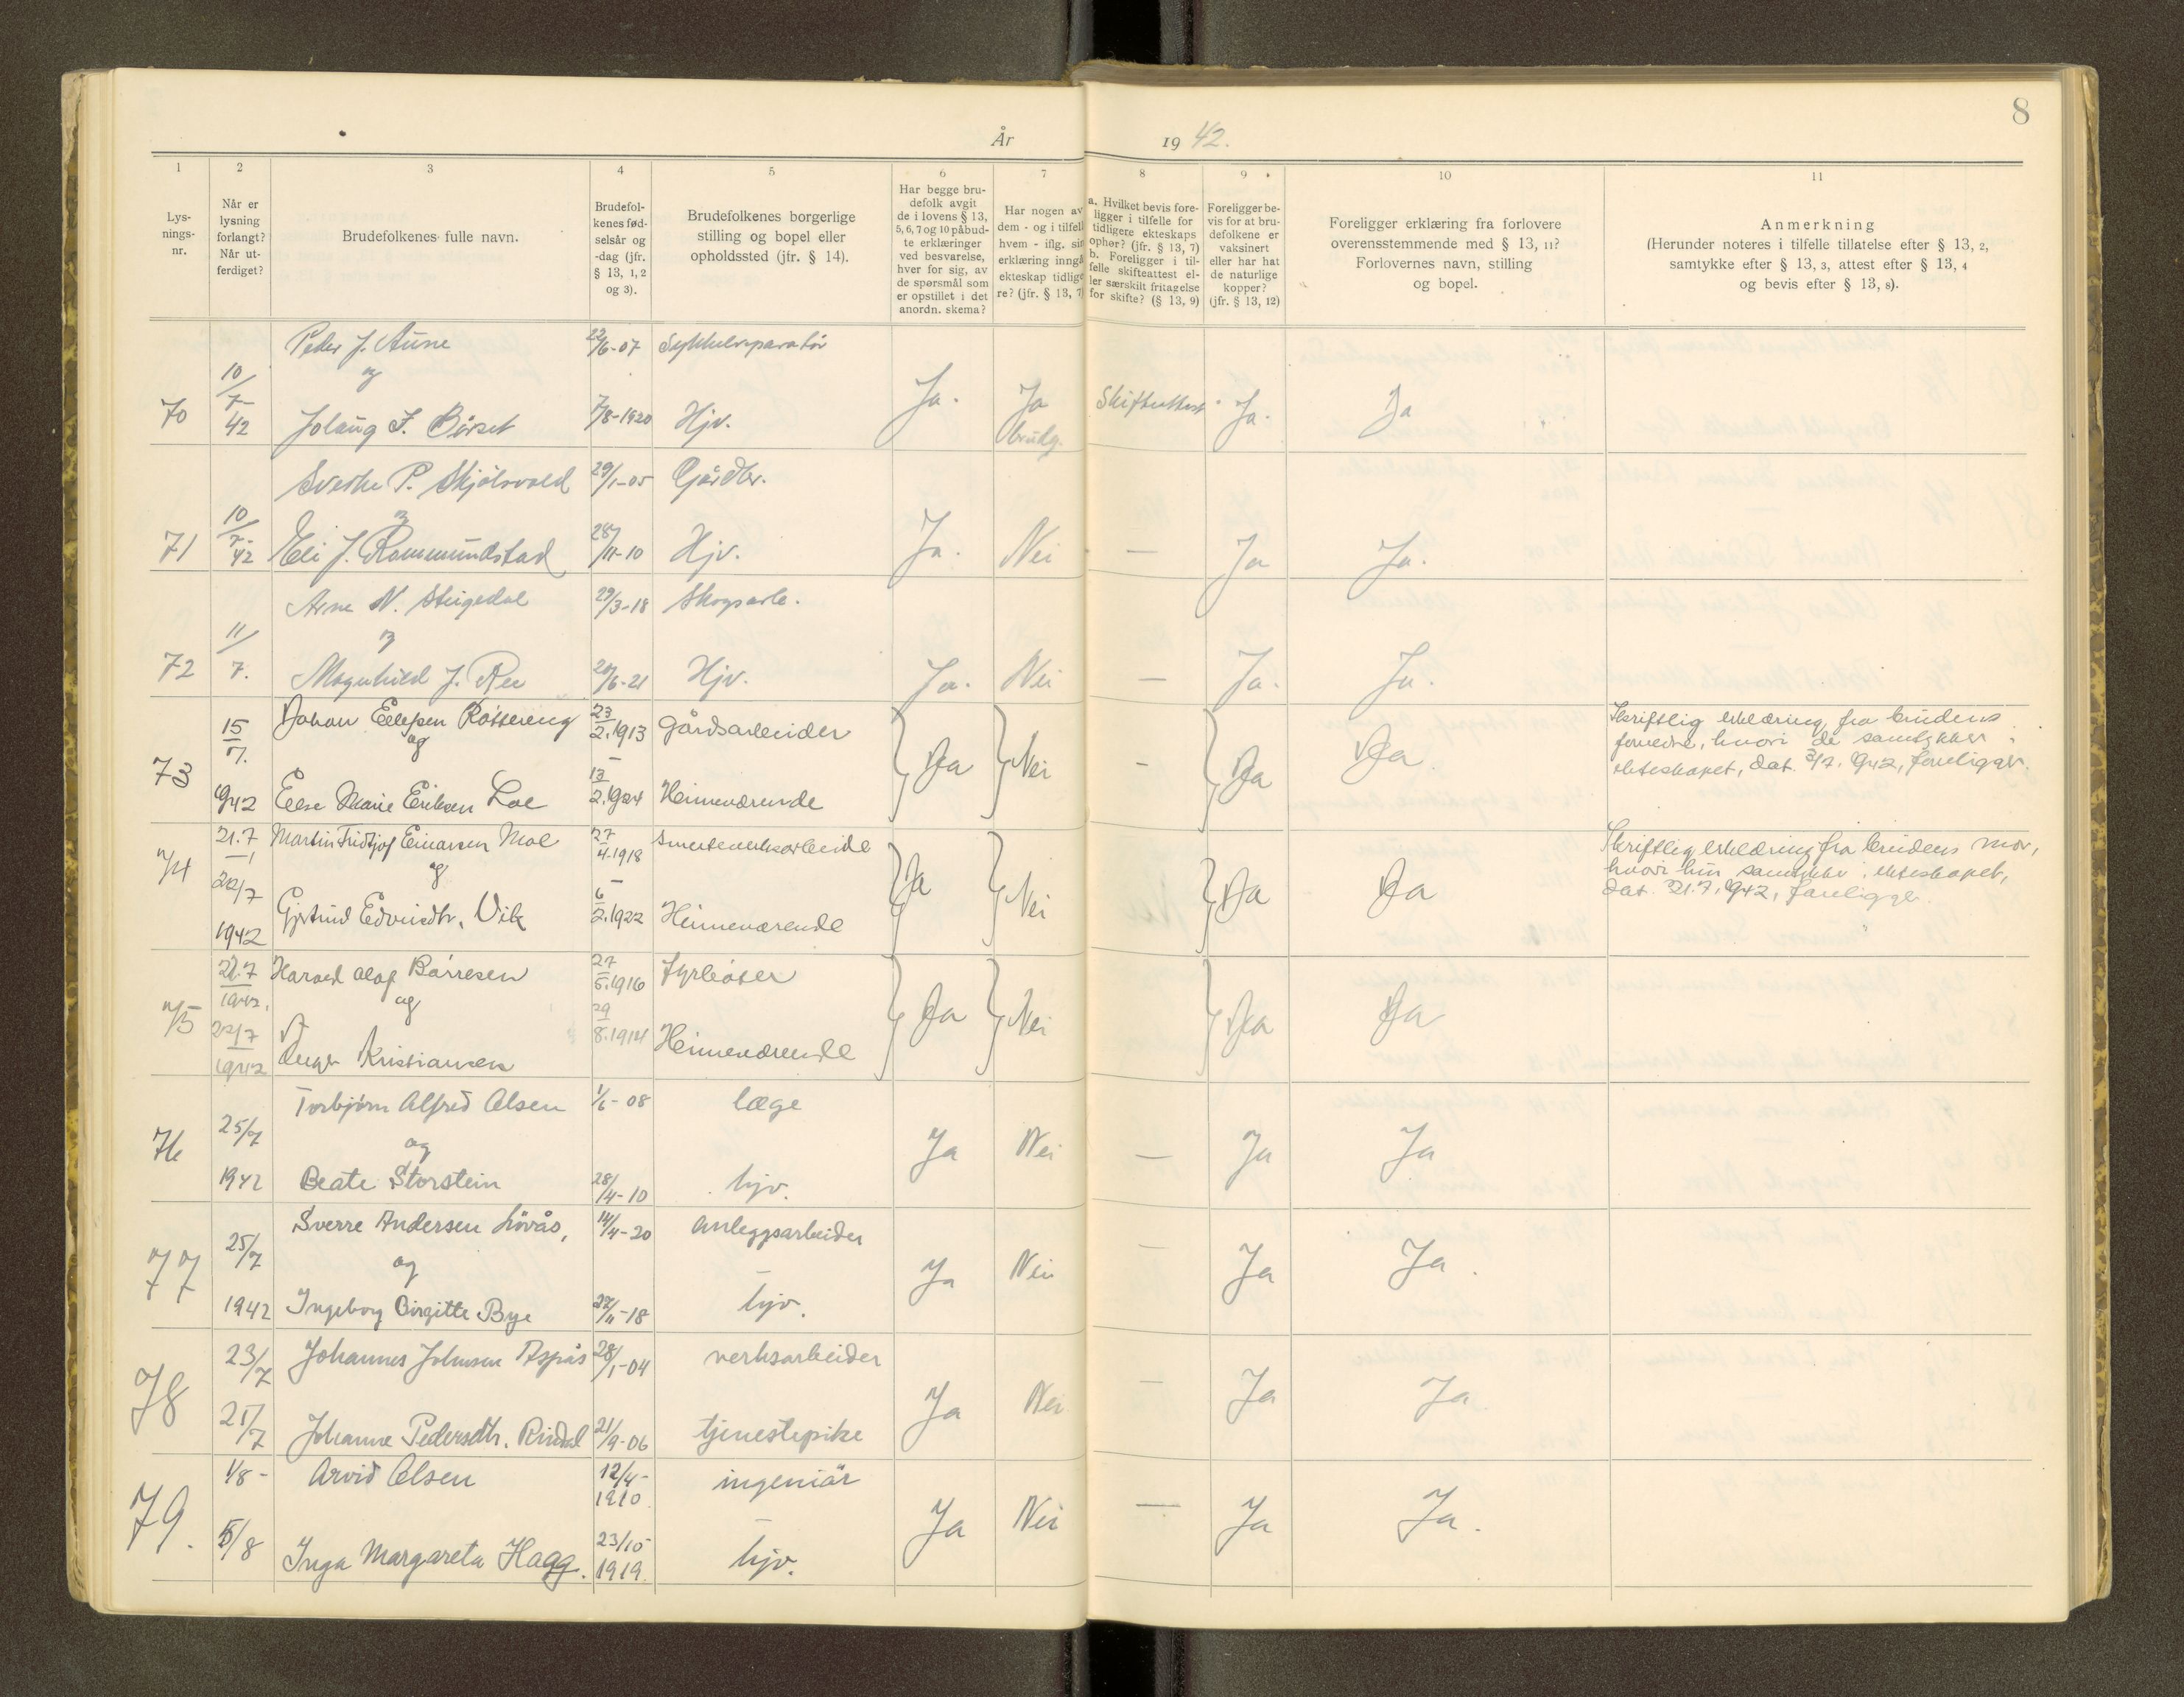 8
År 19 42.
1 2 3 4 5 6 7 8 9 10 11
Lys-
nings-
nr.
Når er
lysning
forlangt?
Når ut-
ferdiget?
Brudefolkenes fulle navn.
Brudefol-
kenes fød-
selsår og
-dag (jfr.
§ 13, 1, 2
og 3).
Brudefolkenes borgerlige
stilling og bopel eller
opholdssted (jfr. § 14).
Har begge bru-
defolk avgit
de i lovens § 13,
5, 6, 7 og 10 påbud-
te erklæringer
ved besvarelse,
hver for sig, av
de spørsmål som
er opstillet i det
anordn. skema?
Har nogen av
dem - og i tilfell
hvem - iflg. sin
erklæring inngå
ekteskap tidlige
re? (jfr. § 13, 7)
a. Hvilket bevis fore-
ligger i tilfelle for
tidligere ekteskaps
ophør? (jfr. § 13, 7)
b. Foreligger i til-
felle skifteattest el-
ler særskilt fritagelse
for skifte? (§ 13, 9)
Foreligger be-
vis for at bru-
defolkene er
vaksinert
eller har hat
de naturlige
kopper?
(jfr. § 13, 12)
Foreligger erklæring fra forlovere
overensstemmende med § 13, 11?
Forlovernes navn, stilling
og bopel.
Anmerkning
(Herunder noteres i tilfelle tillatelse efter § 13, 2,
samtykke efter § 13, 3, attest efter § 13, 4
og bevis efter § 13, 8).
Peder J. Aune 22/6-07 Sykkelreparatør
og
70 10/7-42 Jolaug F. Børset 7/8-1920 Hjv. Ja. Ja brudg. Skifteattest. Ja. Ja
Sverke P. Skjølsvold 29/1-05 Gårdbr.
og
71 10/7-42 Eli J. Rommundstad 28/11-10 Hjv. Ja. Nei — Ja Ja.
Arne N. Stugedal 29/3-18 Skogsarb.
og
72 11/7. Magnhild J. Ree 20/6-21 Hjv. Ja. Nei — Ja. Ja.
15/7. Johan Ellefsen Røttereng 23/2.1913 Gårdsarbeider
og
73 1942 Else Marie Eriksen Loe 13/2.1924 Heimeværende Ja Nei - Ja Ja
Skriftlig erklæring fra brudens
foreldre, hvori de samtykker i
ekteskapet, dat. 3/7. 1942, foreligger.
21.7 Martin Fridtjof Einarsen Moe 27/4.1918 Smelteverksarbeide
og
74 22/7 1942 Gjertrud Edvindtr. Vik 6/2.1922 Heimeværende Ja Nei Ja Ja
Skriftlig erklæring fra brudens mor,
hvori hun samtykker i ekteskapet,
dat. 21.7.1942, foreligger.
21.7 1942. Harald Olaf Børresen 27/5.1916 Fyrbøter
og
75 22/7 1942 Inger Kristiansen 29/8.1914 Heimeværende Ja Nei Ja Ja
Torbjørn Alfred Olsen 1/6-08 læge
76 25/7 og Ja Nei — Ja Ja
1942 Beate Storstein 28/4-10 hjv.
Sverre Andersen Løvås, 14/4-20 anleggsarbeider
77 25/7 og Ja Nei — Ja Ja.
1942 Ingeborg Birgitte Bye 27/11-18 hjv.
23/7 Johannes Johnsen Aspås 28/1-04 verksarbeider
78 Ja Nei — Ja Ja.
25/7 Johanne Pedersdtr. Rindal 21/9-06 tjenestepike
1/8- Arvid Olsen 12/4-1910. ingeniør
79. Ja Nei — Ja Ja.
5/8 Inga Margareta Hagg. 23/10-1919. hjv.